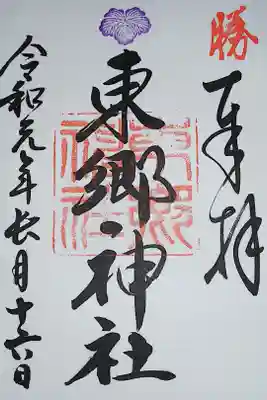 勝
奉拝
東郷神社
令和元年長月十六日